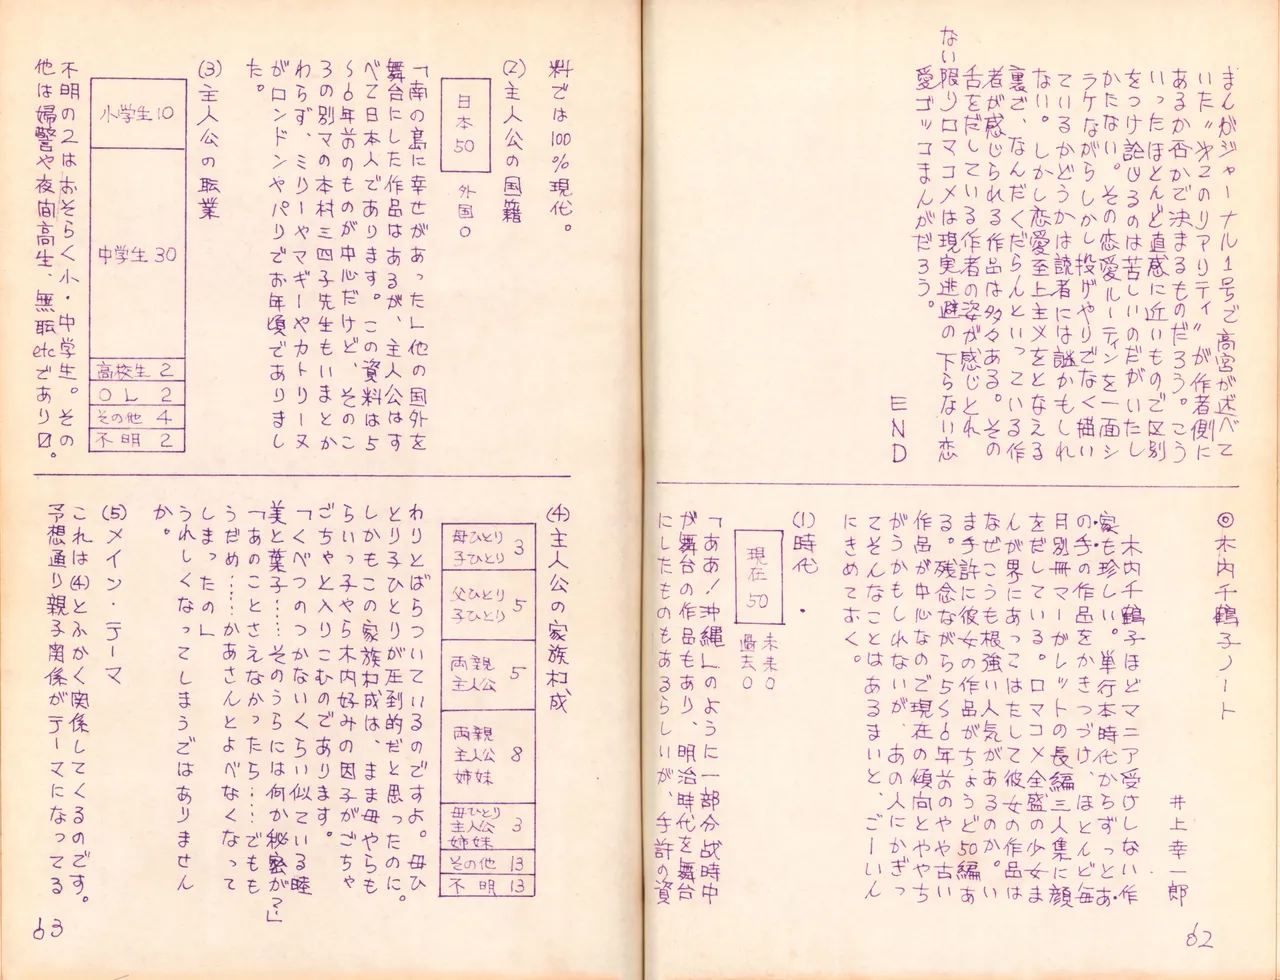 まんがジャーナル1号で高宮が述べて
いた〝才2のリアリティ〟が作者側に
あるか否かで決まるものだろう。こう
いったほとんど直感に近いもので区別
をつけ論じるのは苦しいのだがいたし
かたない。その恋愛ルーティンを一面シ
ラケながらしかし投げやりでなく描い
ているかどうかは読者には謎かもしれ
ない。しかし恋愛至上主メをとなえる
裏で、なんだくだらんといっている作
者が感じられる作品は多々ある。その
舌をだしている作者の姿が感じとれ
ない限りロマコメは現実逃避の下らない恋
愛ゴッコまんがだろう。
END
◎木内千鶴子ノート
井上幸一郎
木内千鶴子ほどマニア受けしない作
家も珍しい。単行本時代からずっとあ
の手の作品をかきつづけ、ほとんど毎
月別冊マーガレットの長編三人集に顔
をだしている。ロマコメ全盛の少女ま
んが界にあってはたして彼女の作品は
なぜこうも根強い人気があるのか。い
ま手許に彼女の作品がちょうど50編あ
る。残念ながら5〜6年前のやや古い
作品が中心なので現在の傾向とややち
がうかもしれないが、あの人にかぎっ
てそんなことはあるまいと、ごーいん
にきめておく。
(1)時代
現在50
未来0
過去0
「ああ!沖縄」のように一部分戦時中
が舞台の作品もあり、明治時代を舞台
にしたものもあるらしいが、手許の資
62
料では100%現代。
(2)主人公の国籍
日本50
外国0
「南の島に幸せがあった」他の国外を
舞台にした作品はあるが、主人公はす
べて日本人であります。この資料は5
〜6年前のものが中心だけど、そのこ
ろの別マの本村三四子先生もいまとか
わらず、ミリーやマギーやカトリーヌ
がロンドンやパリでお年頃でありまし
た。
(3)主人公の職業
小学生10
中学生30
高校生2
OL2
その他4
不明2
不明の2はおそらく小・中学生。その
他は婦警や夜間高生、無職etcであり〼。
(4)主人公の家族构成
母ひとり
子ひとり
3
父ひとり
子ひとり
5
両親
主人公
5
両親
主人公
姉妹
8
母ひとり
主人公
姉妹
3
その他13
不明13
わりとばらついているのですよ。母ひ
とり子ひとりが圧到的だと思ったのに。
しかもこの家族构成は、まま母やらも
らいっ子やら木内好みの因子がごちゃ
ごちゃと入りこむのであります。
「くべつのつかないくらい似ている睦
美と葉子……そのうらには何か秘密が?」
「あのことさえなかったら……でもも
うだめ……かあさんとよべなくなって
しまったの」
うれしくなってしまうではありません
か。
(5)メイン・テーマ
これは(4)とふかく関係してくるのです。
予想通り親子関係がテーマになってる
63